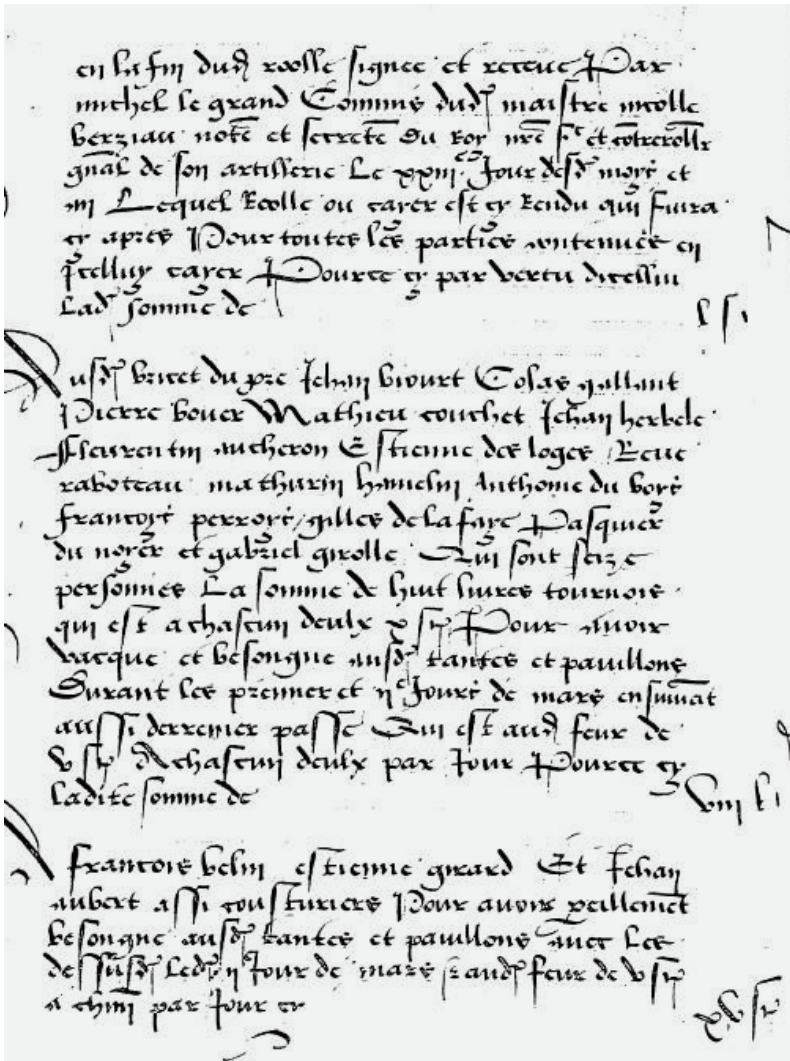 en la fin dud roolle signee et receue Par
michel le grand Commis dud maistre nicolle
berziau not~e et secret~e du Roy nr~e sr et contrerollr
gnal de son artillerie Le xxiiie Jour desd moys et
an Lequel Roolle ou cayer est cy Rendu qui suira
cy apres Pour toutes les parties contenues en
Icelluy cayer Pource cy par vertu dicelluy
Lad somme de
l s t
Ausd bricet du pre Jehan biourt Colas gallant
Pierre bouer Mathieu couchet Jehan herbele
Fleurentin aucheron Estienne des loges Rene
raboteau mathurin hamelin Anthoine du boys
francoys perroys gilles de la faye Pasquier
du noyer et gabriel girolle Qui sont seize
personnes La somme de huit livres tournois
qui est a chascun deulx x s t Pour avoir
vacque et besongne ausd tantes et pavillons
Durant les premier et iie Jours de mars ensuivat
aussi derrenier passe Qui est aud feur de
v s t A chascun deulx par Jour Pource cy
ladite somme de
viii l t
francois belin estienne girard Et Jehan
aubert assi cousturiers Pour avoir peillement
besongne ausd tantes et pavillons avec Les
dessusd Led ii Jour de mars aud feur de v s t
a chun par Jour cy
xv s t